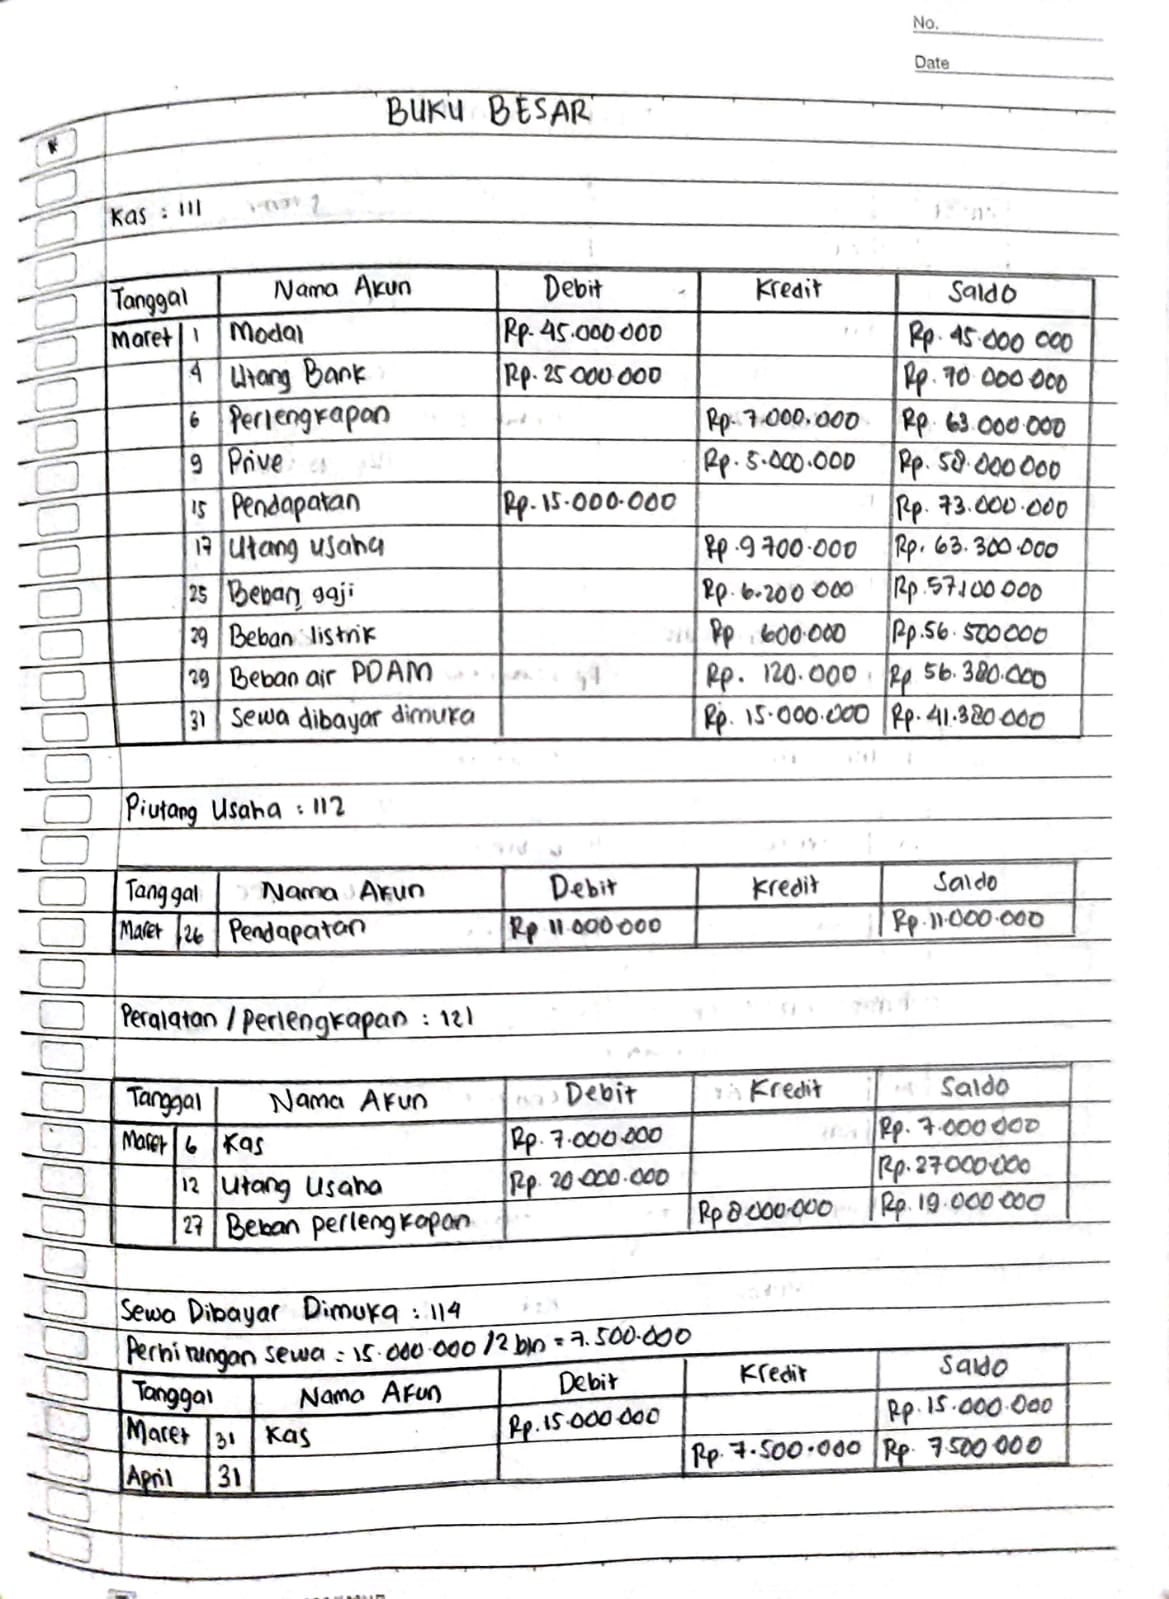 No.
Date
BUKU BESAR
Kas : 111
Tanggal Nama Akun Debit Kredit Saldo
Maret 1 Modal Rp. 45.000.000 Rp. 45.000 000
4 Utang Bank Rp. 25 000 000 Rp. 70 000 000
6 Perlengkapan Rp. 7.000.000 Rp. 63.000.000
9 Prive Rp. 5.000.000 Rp. 58.000000
15 Pendapatan Rp. 15.000.000 Rp. 73.000.000
17 Utang usaha Rp. 9 700.000 Rp. 63.300.000
25 Beban gaji Rp. 6.200 000 Rp. 57.100 000
29 Beban listrik Rp 600.000 Rp. 56.500000
29 Beban air PDAM Rp. 120.000 Rp 56.380.000
31 Sewa dibayar dimuka Rp. 15.000.000 Rp. 41.380 000
Piutang Usaha : 112
Tanggal Nama Akun Debit Kredit Saldo
Maret 26 Pendapatan Rp 11.000 000 Rp. 11.000.000
Peralatan / Perlengkapan : 121
Tanggal Nama Akun Debit Kredit Saldo
Maret 6 Kas Rp. 7.000.000 Rp. 7.000 000
12 Utang Usaha Rp. 20.000.000 Rp. 27000.000
27 Beban perlengkapan Rp 8.000.000 Rp. 19.000 000
Sewa Dibayar Dimuka : 114
Perhitungan sewa : 15.000.000 / 2 bln = 7.500.000
Tanggal Nama Akun Debit Kredit Saldo
Maret 31 Kas Rp. 15.000 000 Rp. 15.000.000
April 31 Rp. 7.500.000 Rp. 7500 000